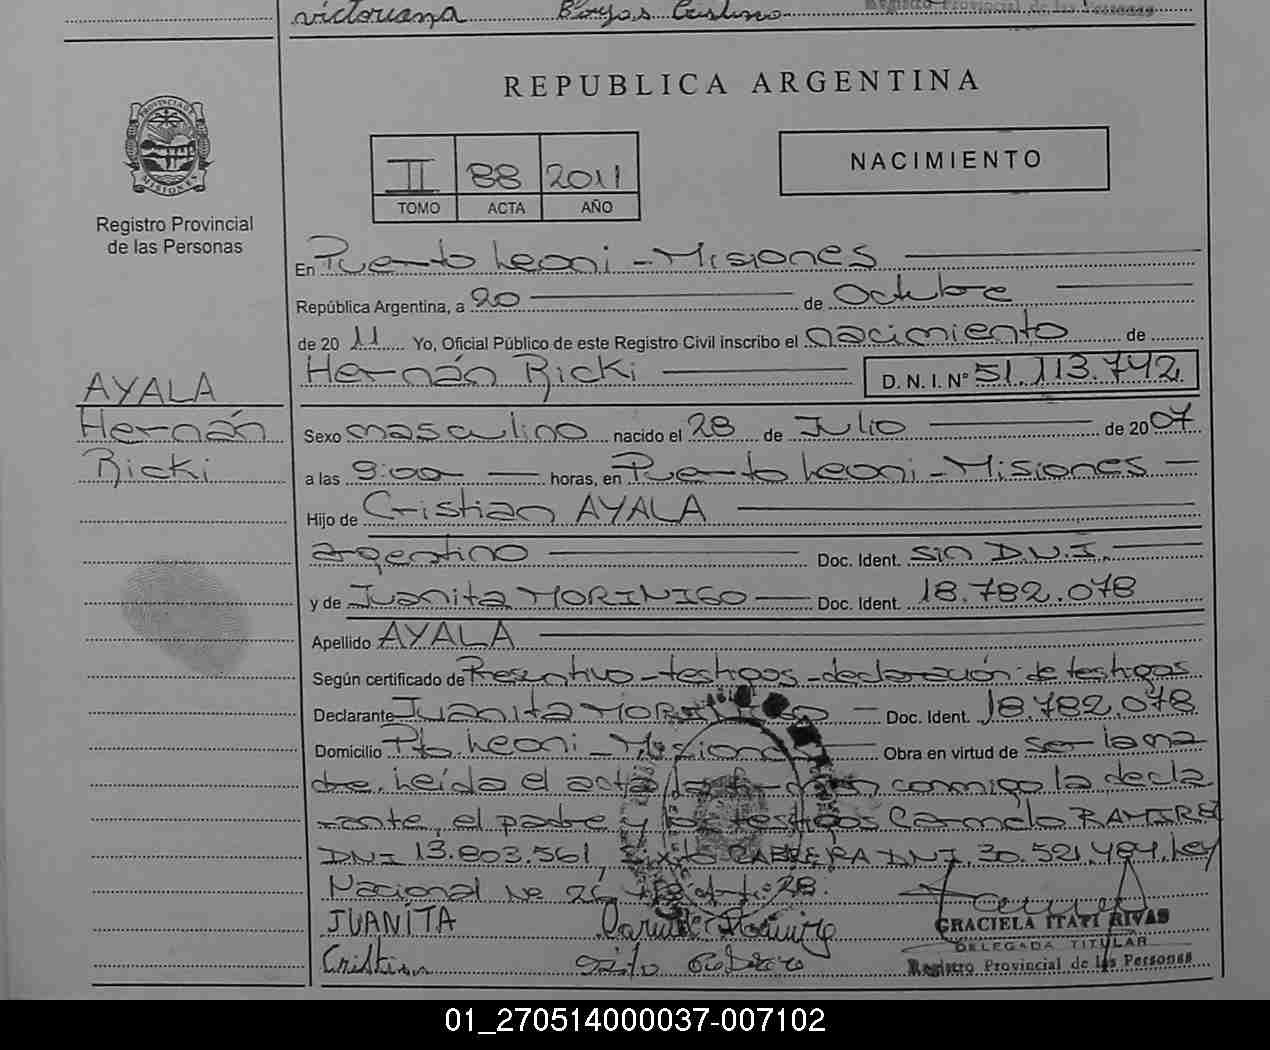 victoriana Borjas Cestino
Registro Provincial de las Personas
REPUBLICA ARGENTINA
PROVINCIA DE
MISIONES
Registro Provincial
de las Personas
II 88 2011
TOMO ACTA AÑO
NACIMIENTO
En Puerto Leoni - Misiones
República Argentina, a 20 de Octubre
de 20 11 Yo, Oficial Público de este Registro Civil inscribo el nacimiento de
Hernán Ricki D.N.I. Nº 51.113.742
AYALA
Hernán
Ricki
Sexo masculino nacido el 28 de Julio de 2007
a las 9:00 horas, en Puerto Leoni - Misiones
Hijo de Cristian AYALA
argentino Doc. Ident. sin D.N.I.
y de Juanita MORINIGO Doc. Ident. 18.782.078
Apellido AYALA
Según certificado de Presentivo - testigos - declaración de testigos
Declarante Juanita MORINIGO Doc. Ident. 18.782.078
Domicilio Pto. Leoni - Misiones Obra en virtud de ser la ma
dre. Leída el acta la firman conmigo la decla
rante, el padre y los testigos Carmelo RAMIREZ
DNI 13.803.561, Sixto CABRERA DNI. 30.521.484. Ley
Nacional Nº 26 Art: 28.
JUANITA
Cristian
GRACIELA ITATI RIVAS
DELEGADA TITULAR
Registro Provincial de las Personas
01_270514000037-007102